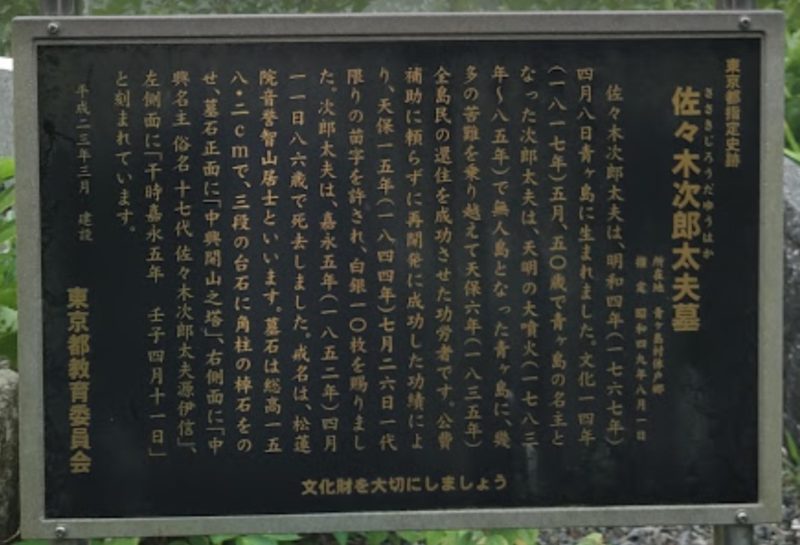 東京都指定史跡
ささきじろうだゆうはか
佐々木次郎太夫墓
所在地 青ヶ島村休戸郷
指定 昭和四九年八月一日
佐々木次郎太夫は、明和四年(一七六七年)
四月八日青ヶ島に生まれました。文化一四年
(一八一七年)五月、五〇歳で青ヶ島の名主と
なった次郎太夫は、天明の大噴火(一七八三
年〜八五年)で無人島となった青ヶ島に、幾
多の苦難を乗り越えて天保六年(一八三五年)
全島民の還住を成功させた功労者です。公費
補助に頼らずに再開発に成功した功績によ
り、天保一五年(一八四四年)七月二六日一代
限りの苗字を許され、白銀一〇枚を賜りまし
た。次郎太夫は、嘉永五年(一八五二年)四月
一一日八六歳で死去しました。戒名は、松蓮
院音誉智山居士といいます。墓石は総高一五
八・二cmで、三段の台石に角柱の棹石をの
せ、墓石正面に「中興開山之塔」、右側面に「中
興名主 俗名十七代 佐々木次郎太夫源伊信」、
左側面に「干時嘉永五年 壬子四月十一日」
と刻まれています。
平成二三年三月 建設
東京都教育委員会
文化財を大切にしましょう